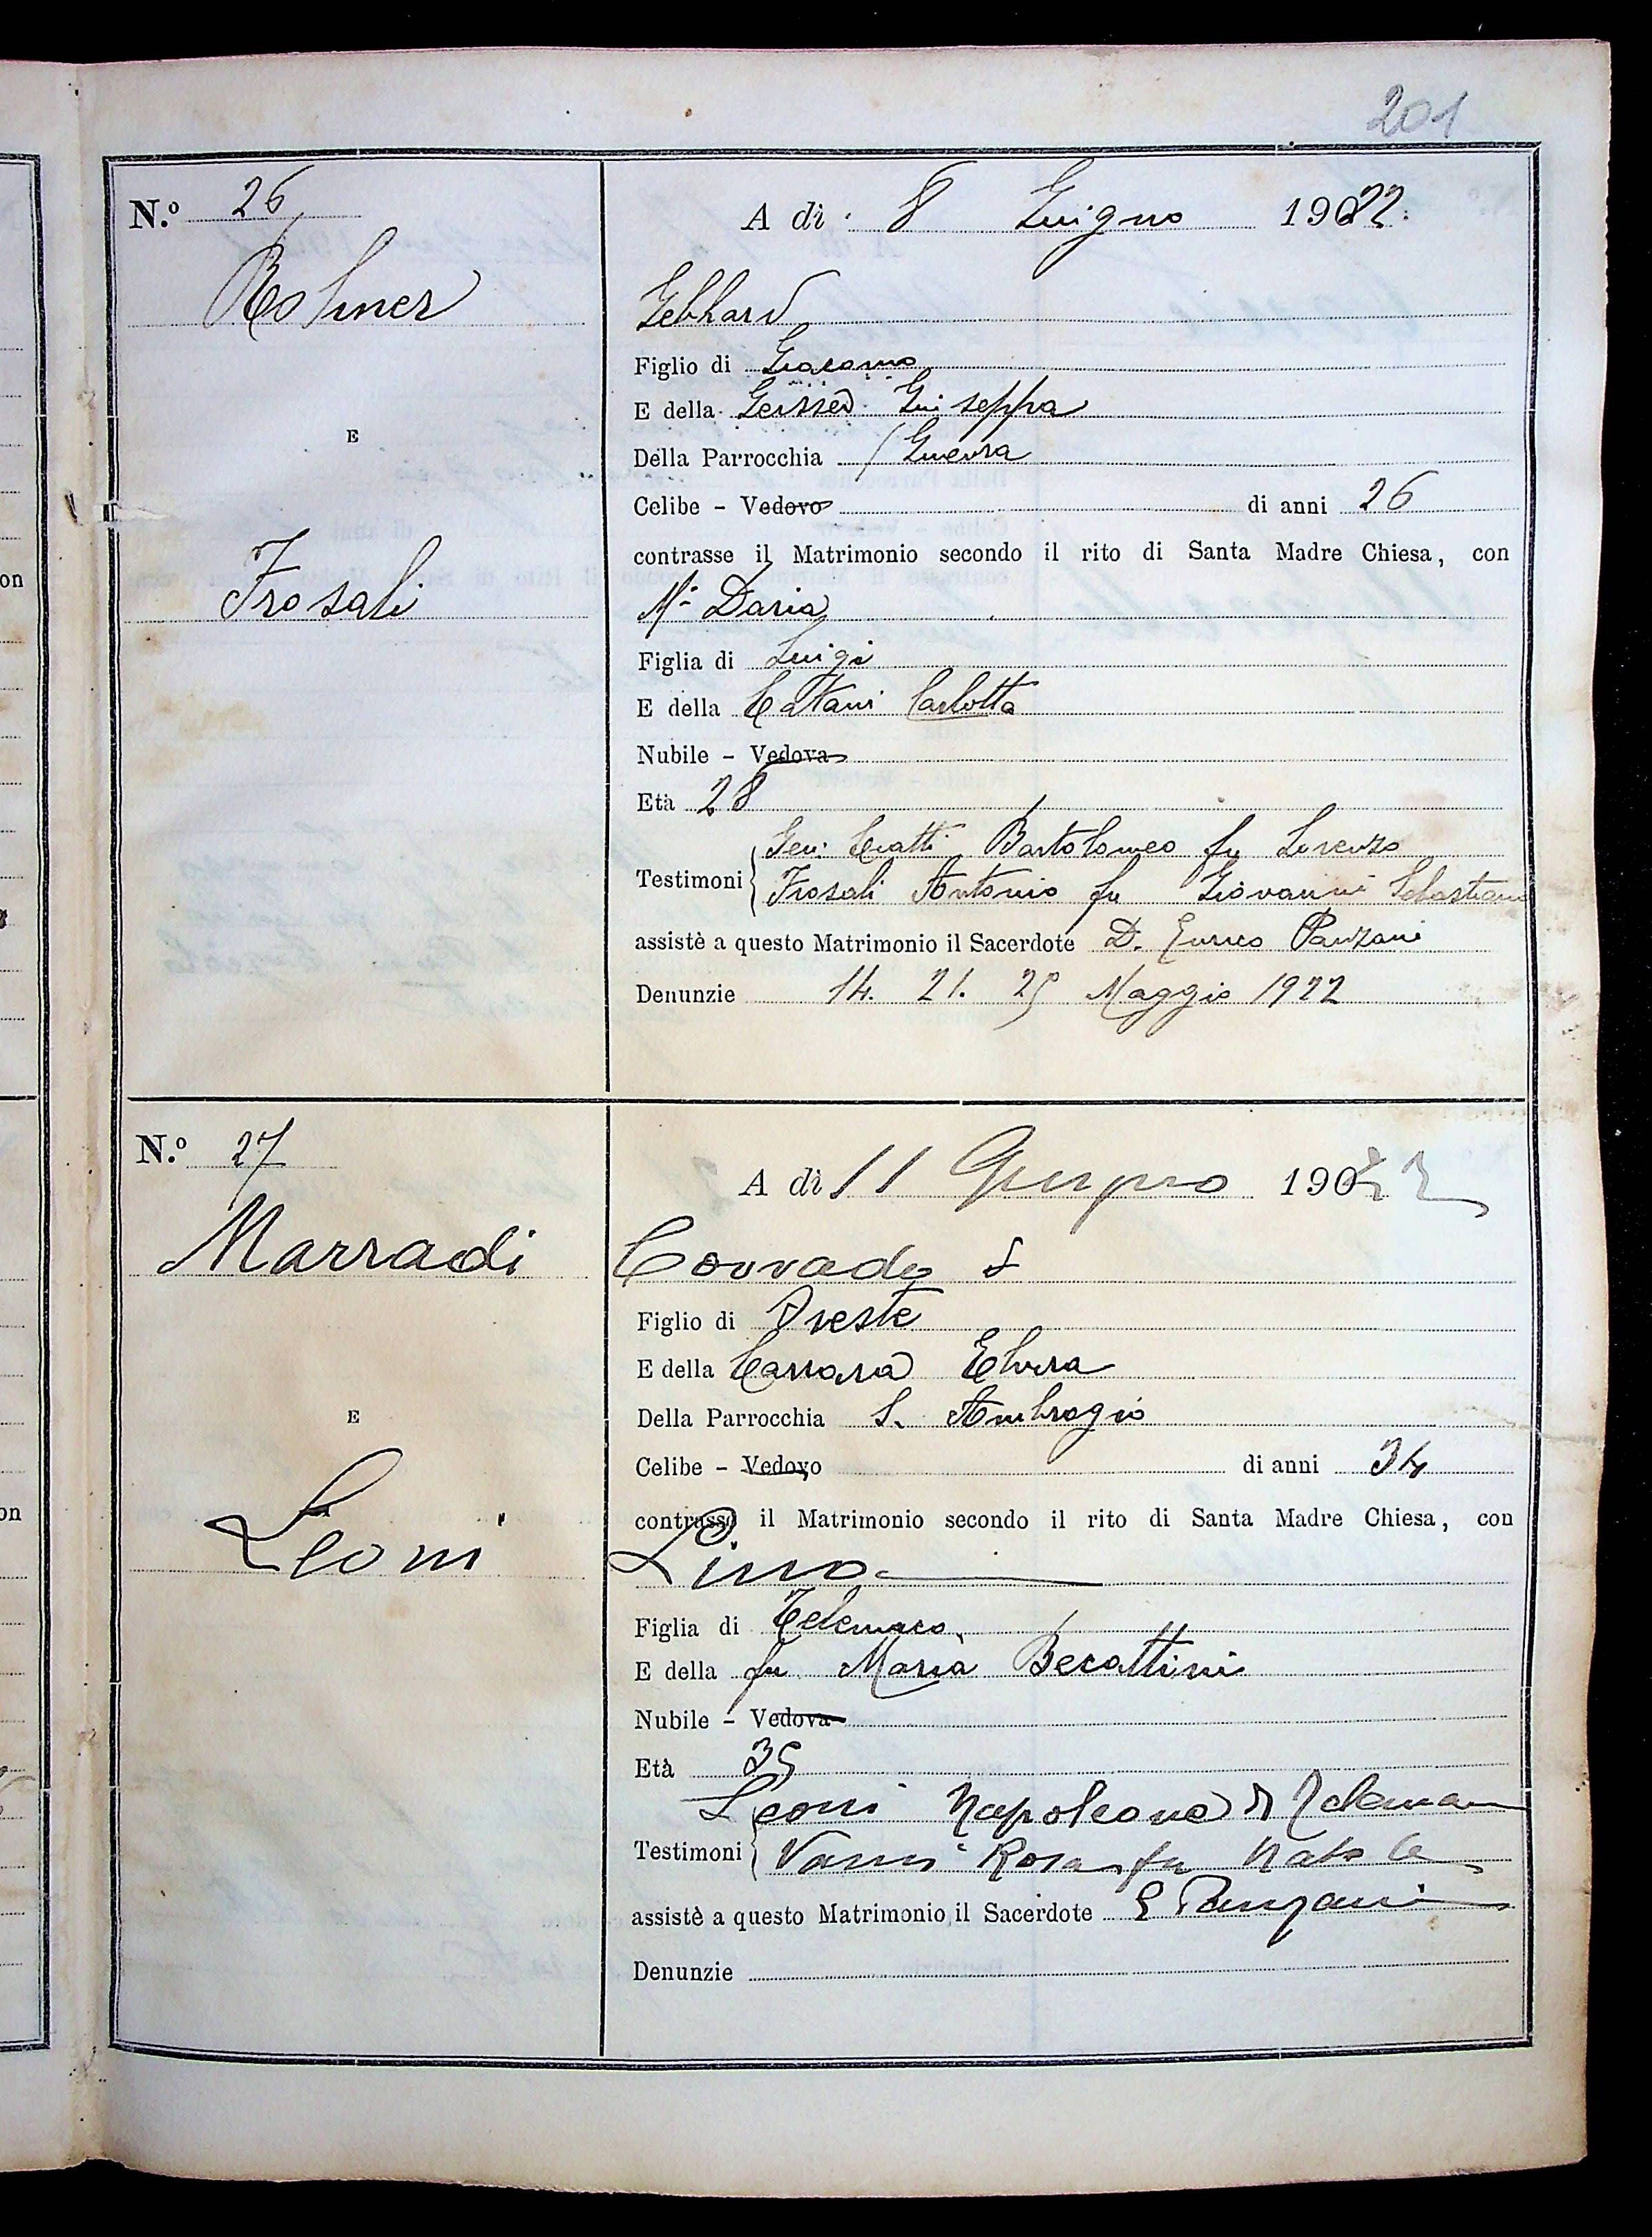 201
N.º 26
A dì 8 Giugno 1922.
Rohner
Gebhard
Figlio di Giacomo
E della Geisser Giuseppa
E
Della Parrocchia (Ginevra
Celibe - Vedovo di anni 26
contrasse il Matrimonio secondo il rito di Santa Madre Chiesa, con
Frosali
Mª Daria
Figlia di Luigi
E della Cattani Carlotta
Nubile - Vedova
Età 28
Gen: Bartolomeo fu Lorenzo
Testimoni
Frosali Antonio fu Giovanni Sebastiano
assistè a questo Matrimonio il Sacerdote D. Enrico Panzani
Denunzie 14. 21. 25 Maggio 1922
N.º 27
A dì 11 Giugno 1922
Marradi
Corrado
Figlio di Oreste
E della Carrara Elvira
E
Della Parrocchia S. Ambrogio
Celibe - Vedovo di anni 34
contrasse il Matrimonio secondo il rito di Santa Madre Chiesa, con
Leoni
Lina
Figlia di Telemaco
E della fu Maria Becattini
Nubile - Vedova
Età 35
Leoni Napoleone di Telemaco
Testimoni
Vanni Rosa fu Natale
assistè a questo Matrimonio il Sacerdote E Panzani
Denunzie